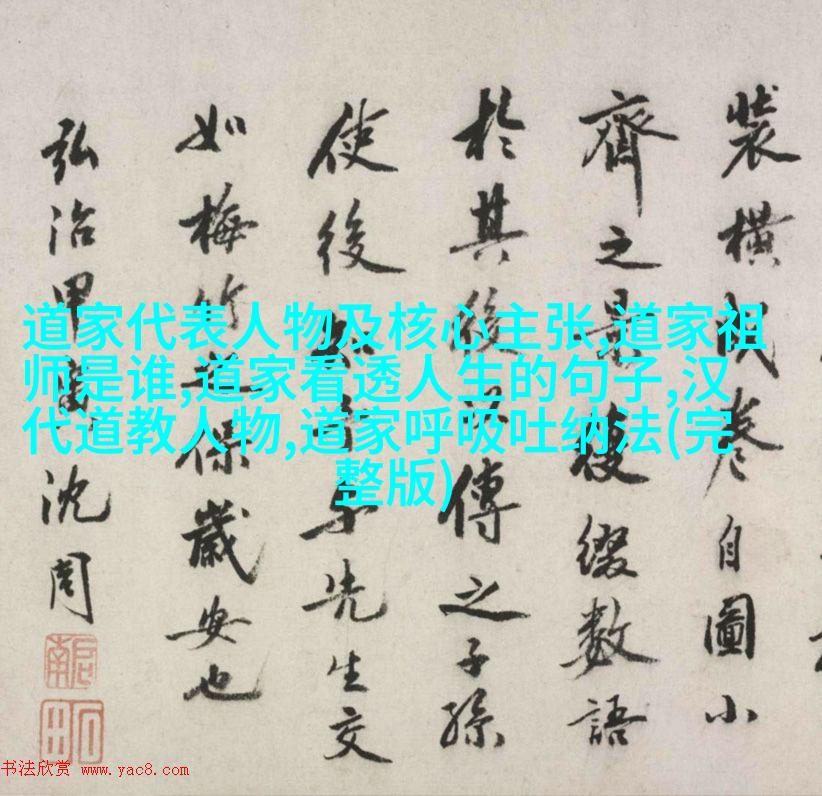 道家代表人物及核心主张,道家祖
师是谁,道家看透人生的句子,汉
代道教人物,道家呼吸吐纳法(完
整版)
裝橫成卷自圖小
齊之景綴數語
於其後以傳之子孫
使後子先生交
如梅竹保歲安也
弘治甲沈周
啟南
书法欣赏 www.yac8.com